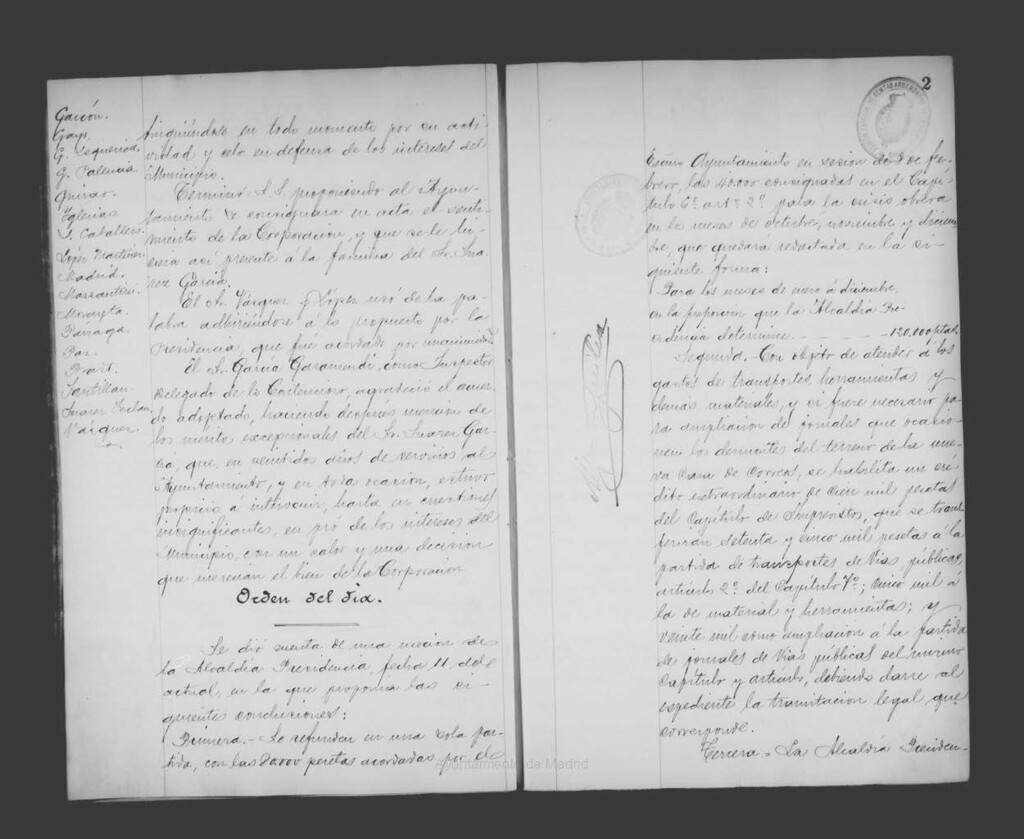 Garcón.
Gayo.
G. Cequeriod
G. Palencia
Guirao.
Iglesias
L. Caballero.
López Martínez
Madrid.
Mazzantini.
Morayta.
Parraga.
Paz.
Prast.
Santillan.
Suarez Inclan.
Vázquez.
tinguiéndose en todo momento por su acti-
vidad y celo en defensa de los intereses del
Municipio.
Terminó S. S. proponiendo al Ayun-
tamiento se consignara en acta el senti-
miento de la Corporación, y que se le hi-
ciera así presente á la familia del Sr. Sua-
rez García.
El Sr. Vázquez y López usó de la pa-
labra adhiriéndose á lo propuesto por la
Presidencia, que fue acordado por unanimidad.
El Sr. García Garamendi, como Inspector
Delegado de lo Contencioso, agradeció el acuer-
do adoptado, haciendo después mención de
los méritos excepcionales del Sr. Suarez Gar-
cía, que, en veintidos años de servicios al
Ayuntamiento, y en toda ocasión, estuvo
propicio á intervenir, hasta en cuestiones
insignificantes, en pró de los intereses del
Municipio, con un calor y una decisión
que merecían el bien de la Corporación
Orden del dia.
Se dió cuenta de una moción de
la Alcaldía Presidencia, fecha 11, del
actual, en la que proponía las si-
guientes conclusiones:
Primera.- Se refunden en una sola par-
tida, con las 80.000 pesetas acordadas por el
2
Excmo Ayuntamiento en sesion de 3 de fe-
brero, las 40.000 consignadas en el Capí-
tulo 6º artº 2º para la crisis obrera
en los meses de octubre, noviembre y diciem-
bre, que quedará redactada en la si-
guiente forma:
Para los meses de enero á diciembre,
en la proporcion que la Alcaldía Pre-
sidencia determine. - - - - 120.000 ptas.
Segunda.- Con objeto de atender á los
gastos de transportes, herramientas y
demás materiales, y si fuere necesario pa-
ra ampliación de jornales que ocasio-
nen los desmontes del terreno de la nue-
va Casa de Correos, se habilita un cré-
dito extraordinario de cien mil pesetas
del Capítulo de Imprevistos, que se trans-
ferirán setenta y cinco mil pesetas á la
partida de transportes de Vías públicas,
artículo 2º del Capítulo 7º; cinco mil á
la de material y herramientas; y
veinte mil como ampliación á la partida
de jornales de Vías públicas del mismo
Capítulo y artículo, debiendo darse al
expediente la tramitación legal que
corresponde.
Tercera.- La Alcaldía Presiden-
Ayuntamiento de Madrid